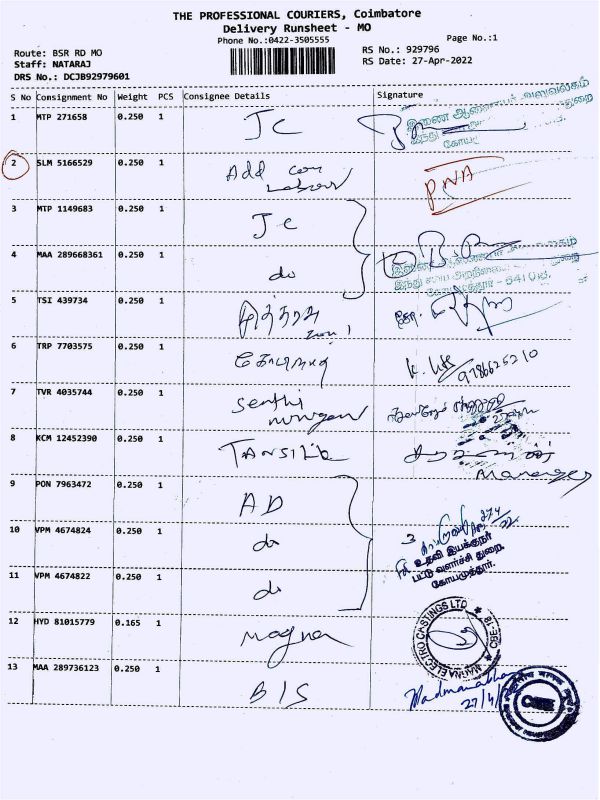 THE PROFESSIONAL COURIERS, Coimbatore
Delivery Runsheet - MO
Phone No.:0422-3505555
Page No.:1
Route: BSR RD MO
Staff: NATARAJ
DRS No.: DCJB92979601
RS No.: 929796
RS Date: 27-Apr-2022
S No Consignment No Weight PCS Consignee Details Signature
1 MTP 271658 0.250 1 JC
2 SLM 5166529 0.250 1 Add Com
Labour PNA
3 MTP 1149683 0.250 1 JC
4 MAA 289668361 0.250 1 do
5 TSI 439734 0.250 1
6 TRP 7703575 0.250 1 9786625210
7 TVR 4035744 0.250 1 Senthi
murugan
8 KCM 12452390 0.250 1 TANSILK
Manager
9 PON 7963472 0.250 1 AD
10 VPM 4674824 0.250 1 do 3 27/4/22
உதவி இயக்குநர்
பட்டு வளர்ச்சி துறை,
கோயமுத்தூர்.
11 VPM 4674822 0.250 1 do
12 HYD 81015779 0.165 1 Magna
MAGNA ELECTRO CASTINGS LTD CBE-18
13 MAA 289736123 0.250 1 BIS
Padmanabhan
27/4/22